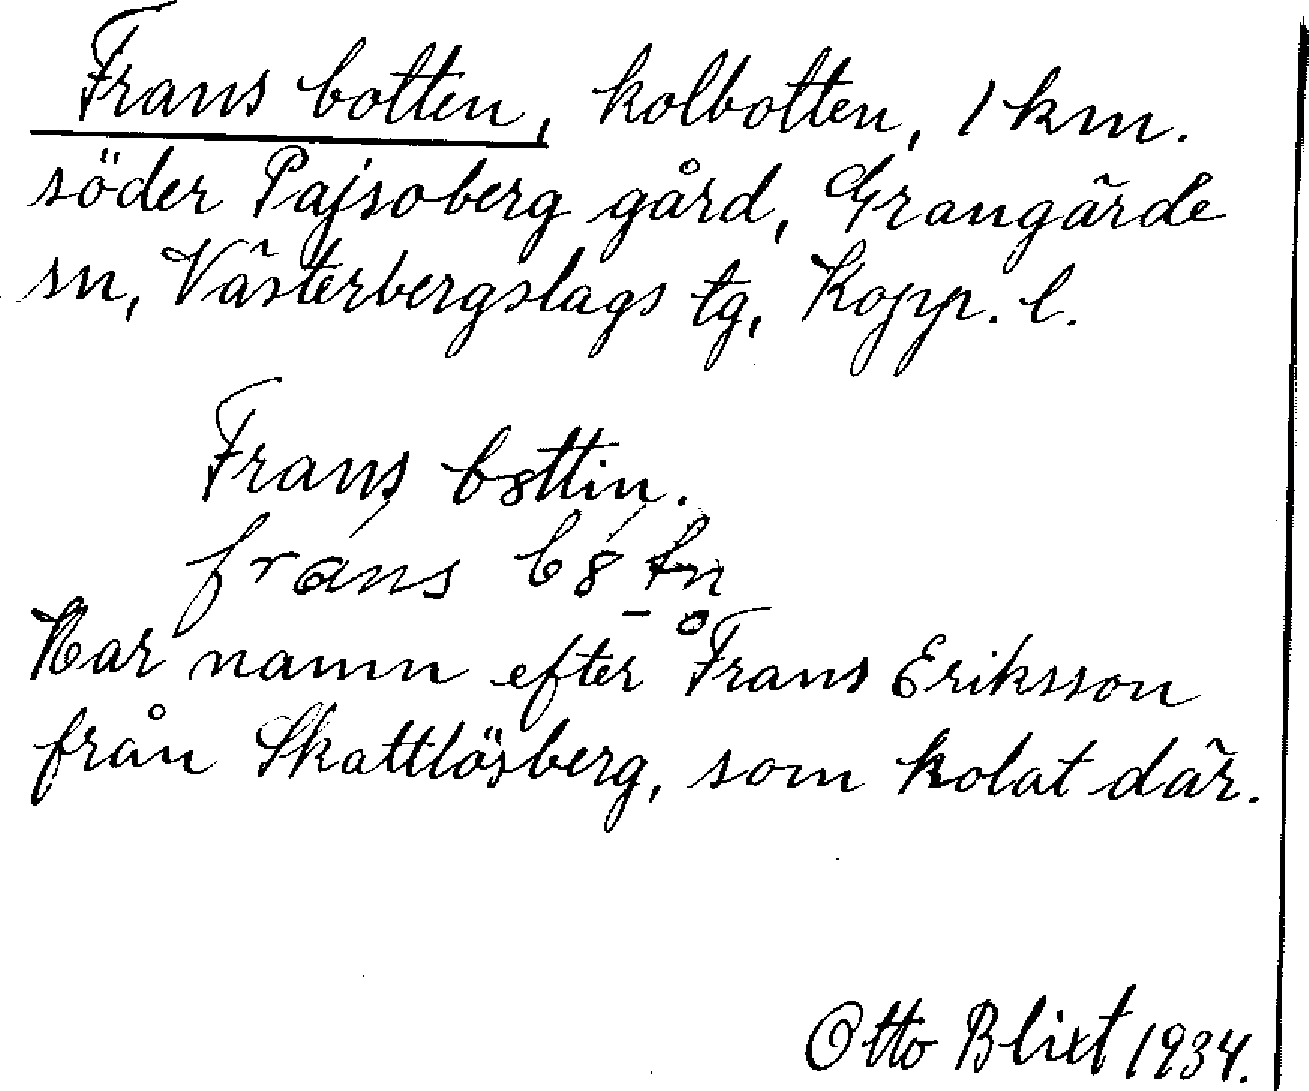 Frans botten, kolbotten, 1 km.
söder Pajsoberg gård, Grangärde
sn, Västerbergslags tg, Kopp. l.
Frans bottin.
frans
Har namn efter Frans Eriksson
från Skattlösberg, som kolat där.
Otto Blixt 1934.